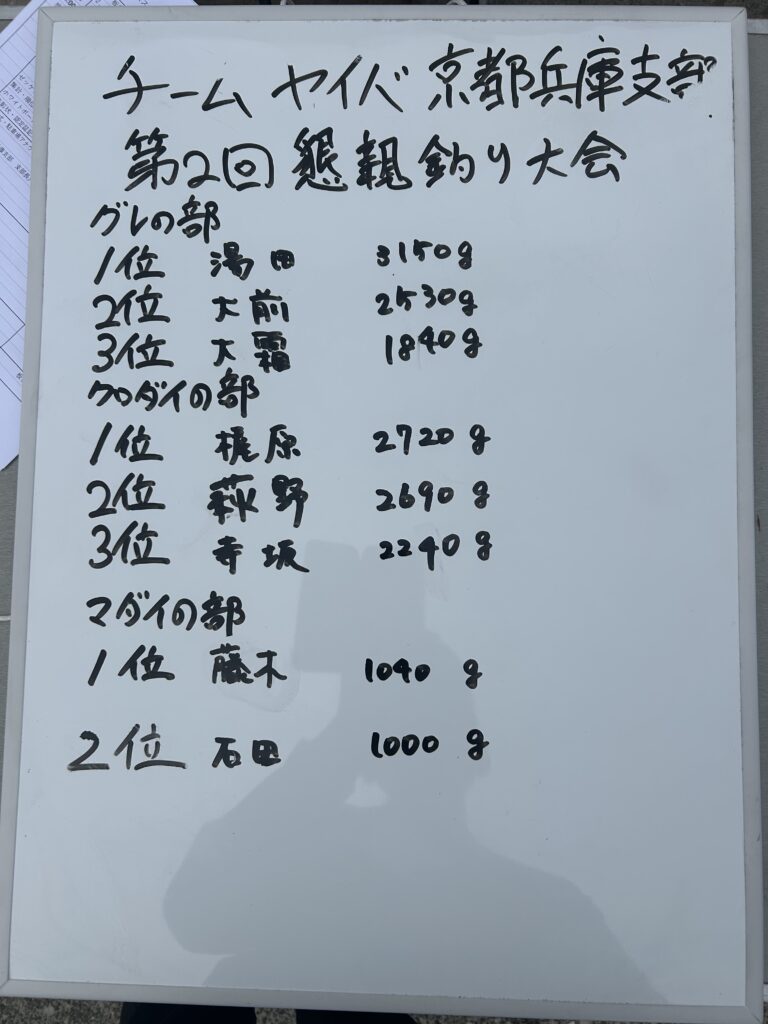 チーム ヤイバ 京都兵庫支部
第2回 懇親釣り大会
グレの部
1位 湯田 3150g
2位 大前 2530g
3位 大霜 1840g
クロダイの部
1位 梶原 2720g
2位 萩野 2690g
3位 寺坂 2240g
マダイの部
1位 藤木 1040g
2位 石田 1000g